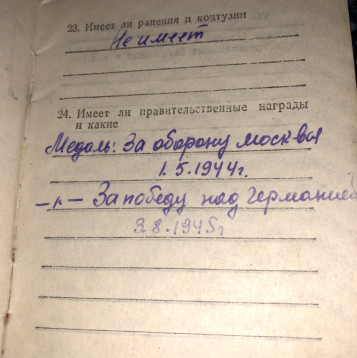 23. Имеет ли ранения и контузии
Не имеет
24. Имеет ли правительственные награды
и какие
Медаль: За оборону Москвы
1.5.1944г.
—〃— За победу над Германией
9.8.1945г